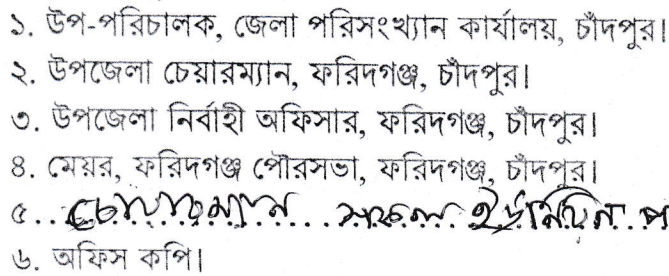 ১. উপ-পরিচালক, জেলা পরিসংখ্যান কার্যালয়, চাঁদপুর।
২. উপজেলা চেয়ারম্যান, ফরিদগঞ্জ, চাঁদপুর।
৩. উপজেলা নির্বাহী অফিসার, ফরিদগঞ্জ, চাঁদপুর।
৪. মেয়র, ফরিদগঞ্জ পৌরসভা, ফরিদগঞ্জ, চাঁদপুর।
৫. চেয়ারম্যান সকল ইউনিয়ন প
৬. অফিস কপি।